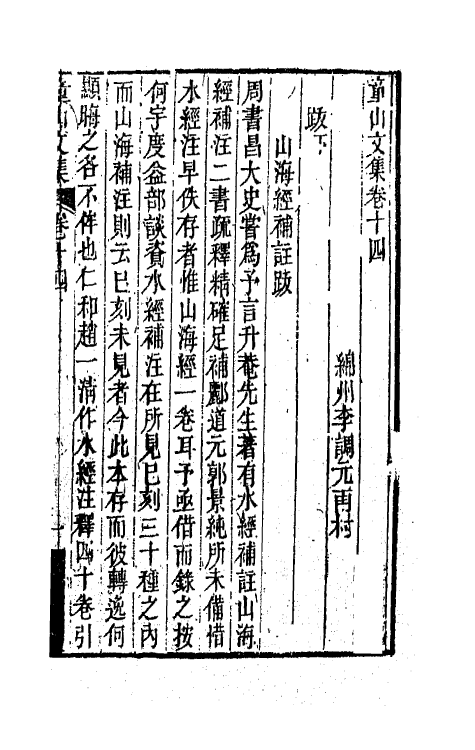 童山文集卷十四
綿州李調元雨村
跋下
山海經補註跋
周書昌大史嘗爲予言升菴先生著有水經補註山海
經補注二書疏釋精確足補酈道元郭景純所未備惜
水經注早佚存者惟山海經一卷耳予亟借而錄之按
何宇度益部談資水經補注在所見已刻三十種之內
而山海補注則云已刻未見者今此本存而彼轉逸何
顯晦之各不侔也仁和趙一清作水經注釋四十卷引
童山文集 卷十四 一